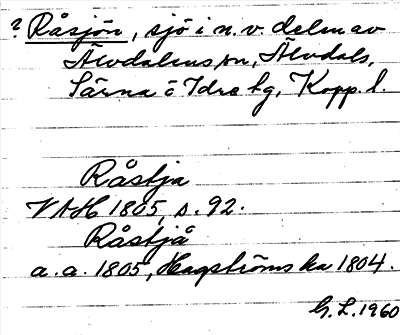 ? Råsjön, sjö i n.v. delen av
Älvdalens sn, Älvdals,
Särna o Idre tg, Kopp. l.
Råstja
VAH 1805, s. 92.
Råstjå
a.a. 1805, Hagströms ka 1804.
G.L. 1960